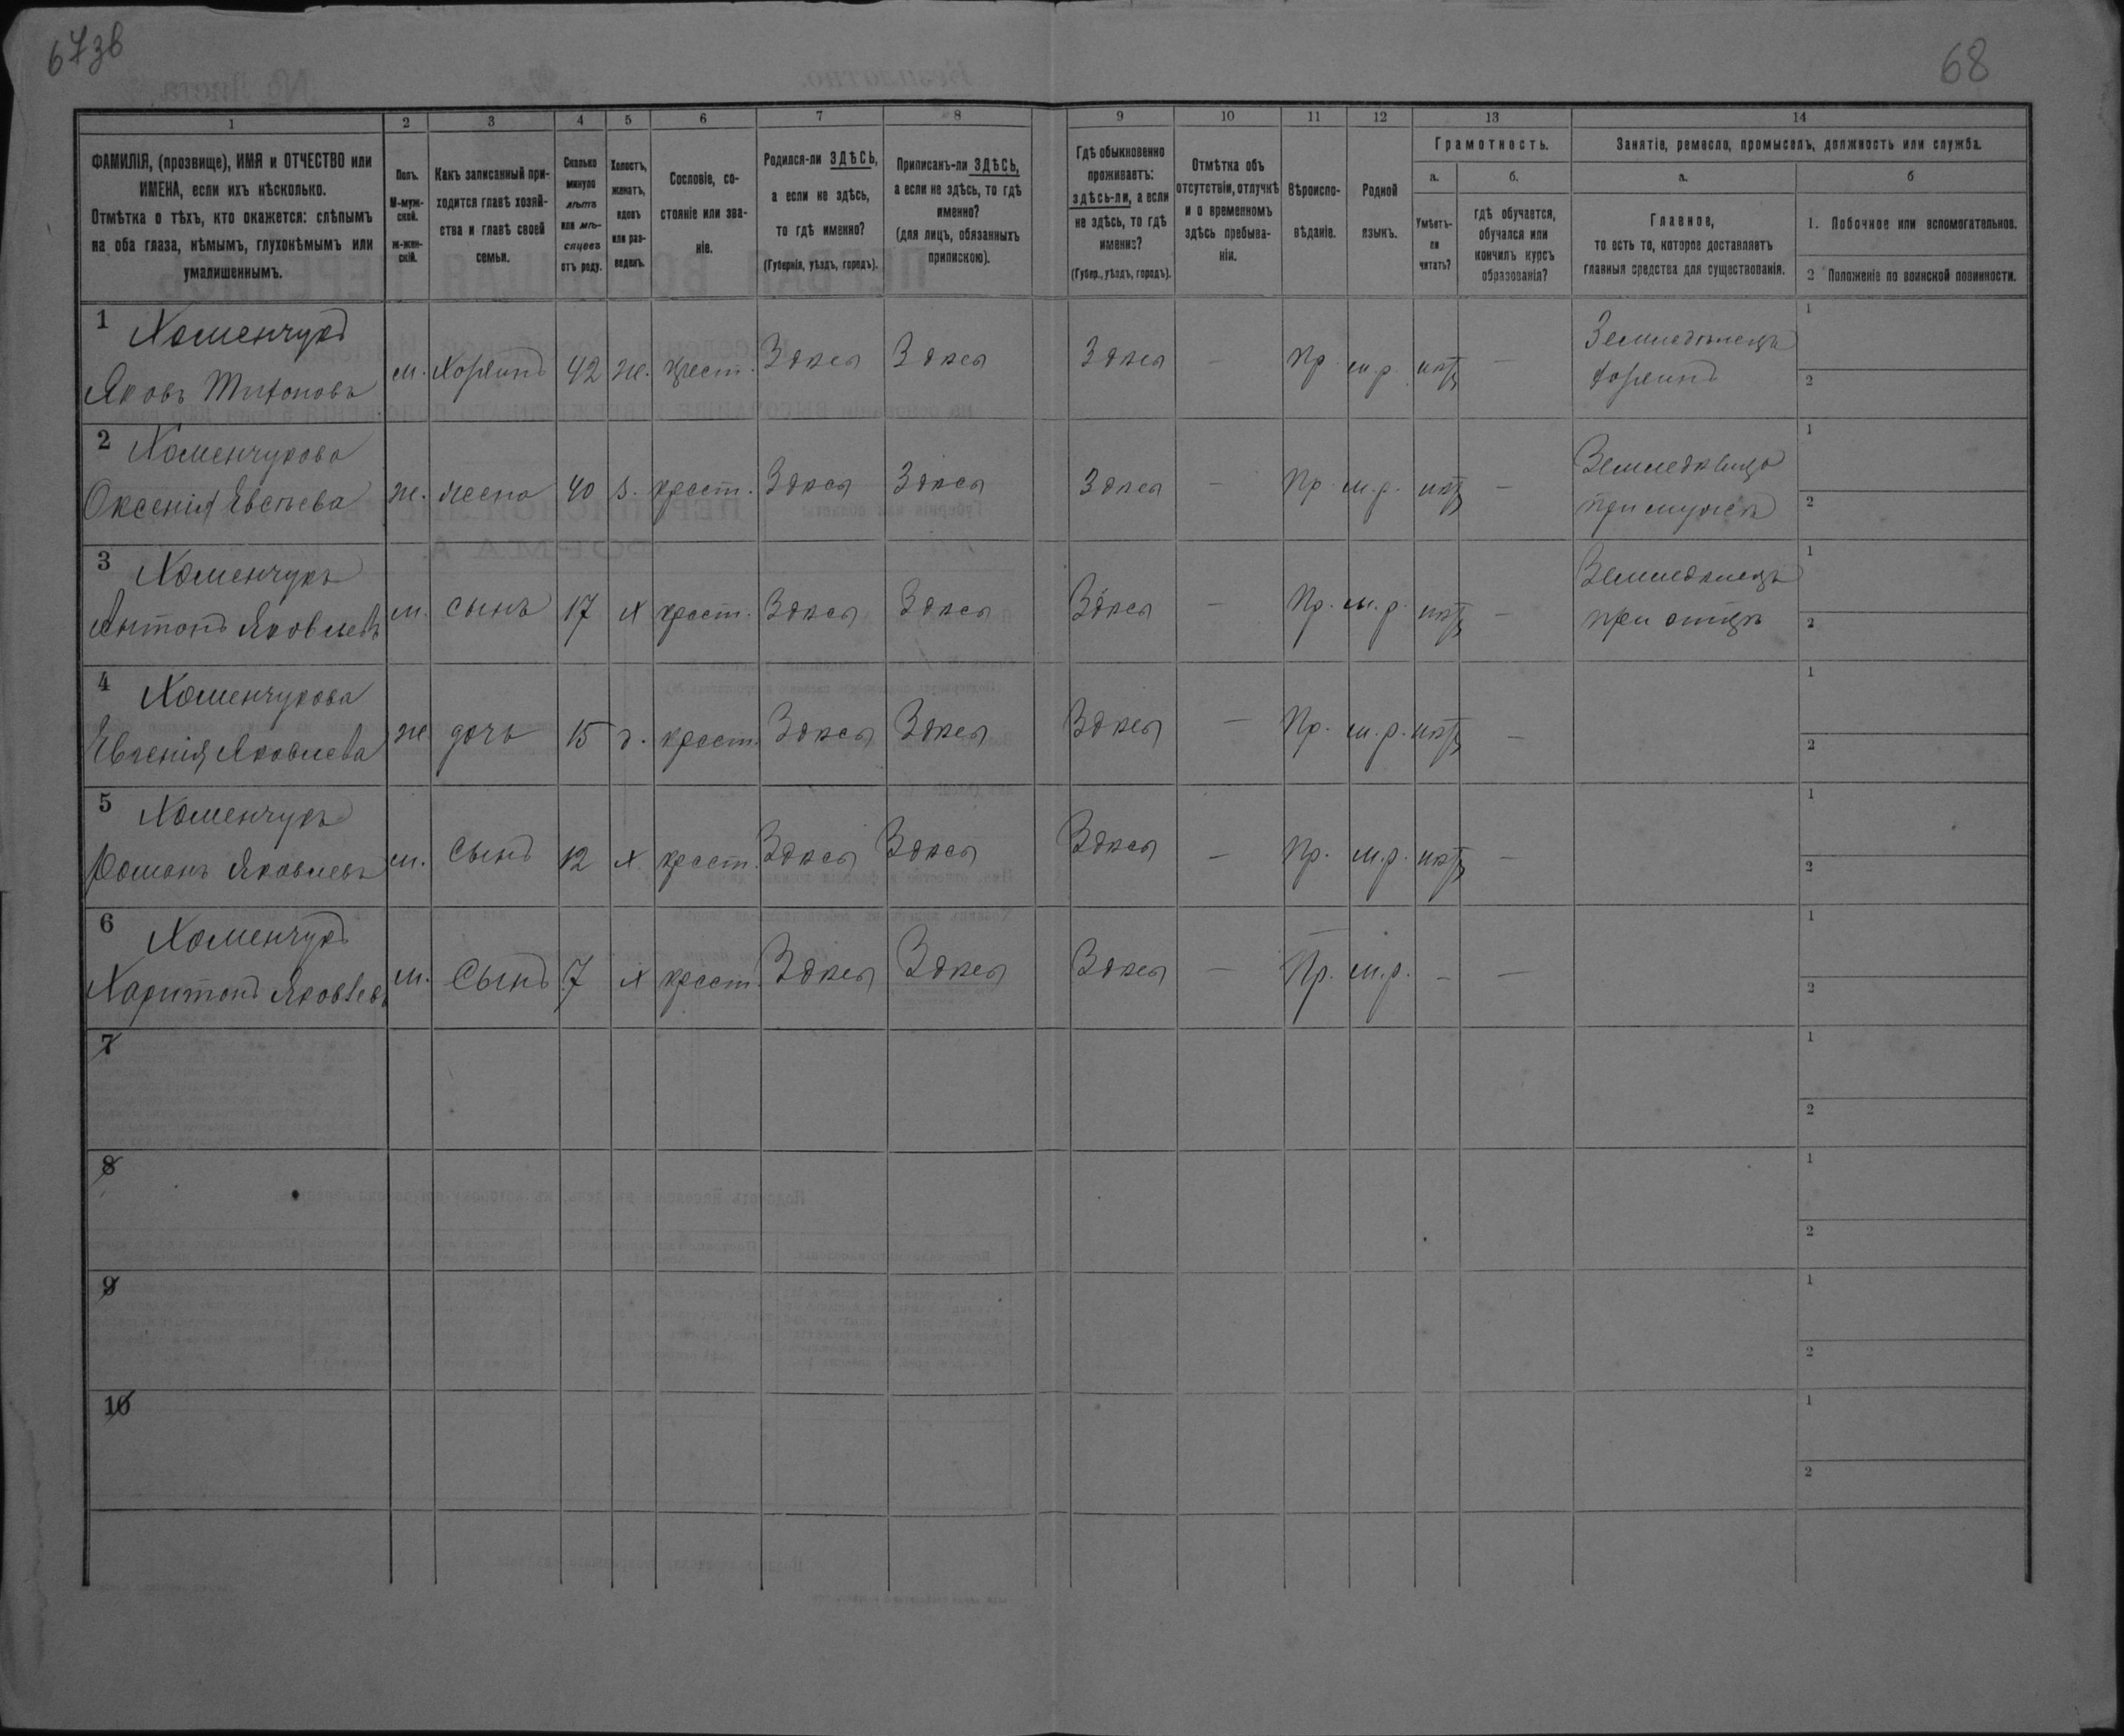 67зв
68
1 2 3 4 5 6 7 8 9 10 11 12 13 14
ФАМИЛІЯ, (прозвище), ИМЯ и ОТЧЕСТВО или
ИМЕНА, если ихъ нѣсколько.
Отмѣтка о тѣхъ, кто окажется: слѣпымъ
на оба глаза, нѣмымъ, глухонѣмымъ или
умалишеннымъ.
Полъ.
М-муж-
ской.
ж-жен-
скій.
Какъ записанный при-
ходится главѣ хозяй-
ства и главѣ своей
семьи.
Сколько
минуло
лѣтъ
или мѣ-
сяцевъ
отъ роду.
Холостъ,
женатъ,
вдовъ
или раз-
веденъ.
Сословіе, со-
стояніе или зва-
ніе.
Родился-ли ЗДѢСЬ,
а если не здѣсь,
то гдѣ именно?
(Губернія, уѣздъ, городъ).
Приписанъ-ли ЗДѢСЬ,
а если не здѣсь, то гдѣ
именно?
(для лицъ, обязанныхъ
припискою).
Гдѣ обыкновенно
проживаетъ:
здѣсь-ли, а если
не здѣсь, то гдѣ
именно?
(Губер., уѣздъ, городъ).
Отмѣтка объ
отсутствіи, отлучкѣ
и о временномъ
здѣсь пребыва-
ніи.
Вѣроиспо-
вѣданіе.
Родной
языкъ.
Грамотность.
а.
Умѣетъ-
ли
читать?
б.
гдѣ обучается,
обучался или
кончилъ курсъ
образованія?
Занятіе, ремесло, промыселъ, должность или служба.
а.
Главное,
то есть то, которое доставляетъ
главныя средства для существованія.
б
1. Побочное или вспомогательное.
2 Положеніе по воинской повинности.
1 Хоменчукъ
Яковъ Тихоновъ м. Хозяинъ 42 ж. крест. Здѣсь Здѣсь Здѣсь — Пр. м.р. нѣтъ —
Земледѣлецъ
хозяинъ
1
2
2 Хоменчукова
Оксенія Евсѣева ж. жена 40 з. крест. Здѣсь Здѣсь Здѣсь — Пр. м.р. нѣтъ —
Земледѣлица
при мужѣ
1
2
3 Хоменчукъ
Антонъ Яковлевъ м. сынъ 17 х крест. Здѣсь Здѣсь Здѣсь — Пр. м.р. нѣтъ —
Земледѣлецъ
при отцѣ
1
2
4 Хоменчукова
Евгенія Яковлева ж дочь 15 д. крест. Здѣсь Здѣсь Здѣсь — Пр. м.р. нѣтъ —
1
2
5 Хоменчукъ
Романъ Яковлевъ м. сынъ 12 х крест. Здѣсь Здѣсь Здѣсь — Пр. м.р. нѣтъ —
1
2
6 Хоменчукъ
Харитонъ Яковлевъ м. сынъ 7 х крест. Здѣсь Здѣсь Здѣсь — Пр. м.р. — —
1
2
7
1
2
8
1
2
9
1
2
10
1
2